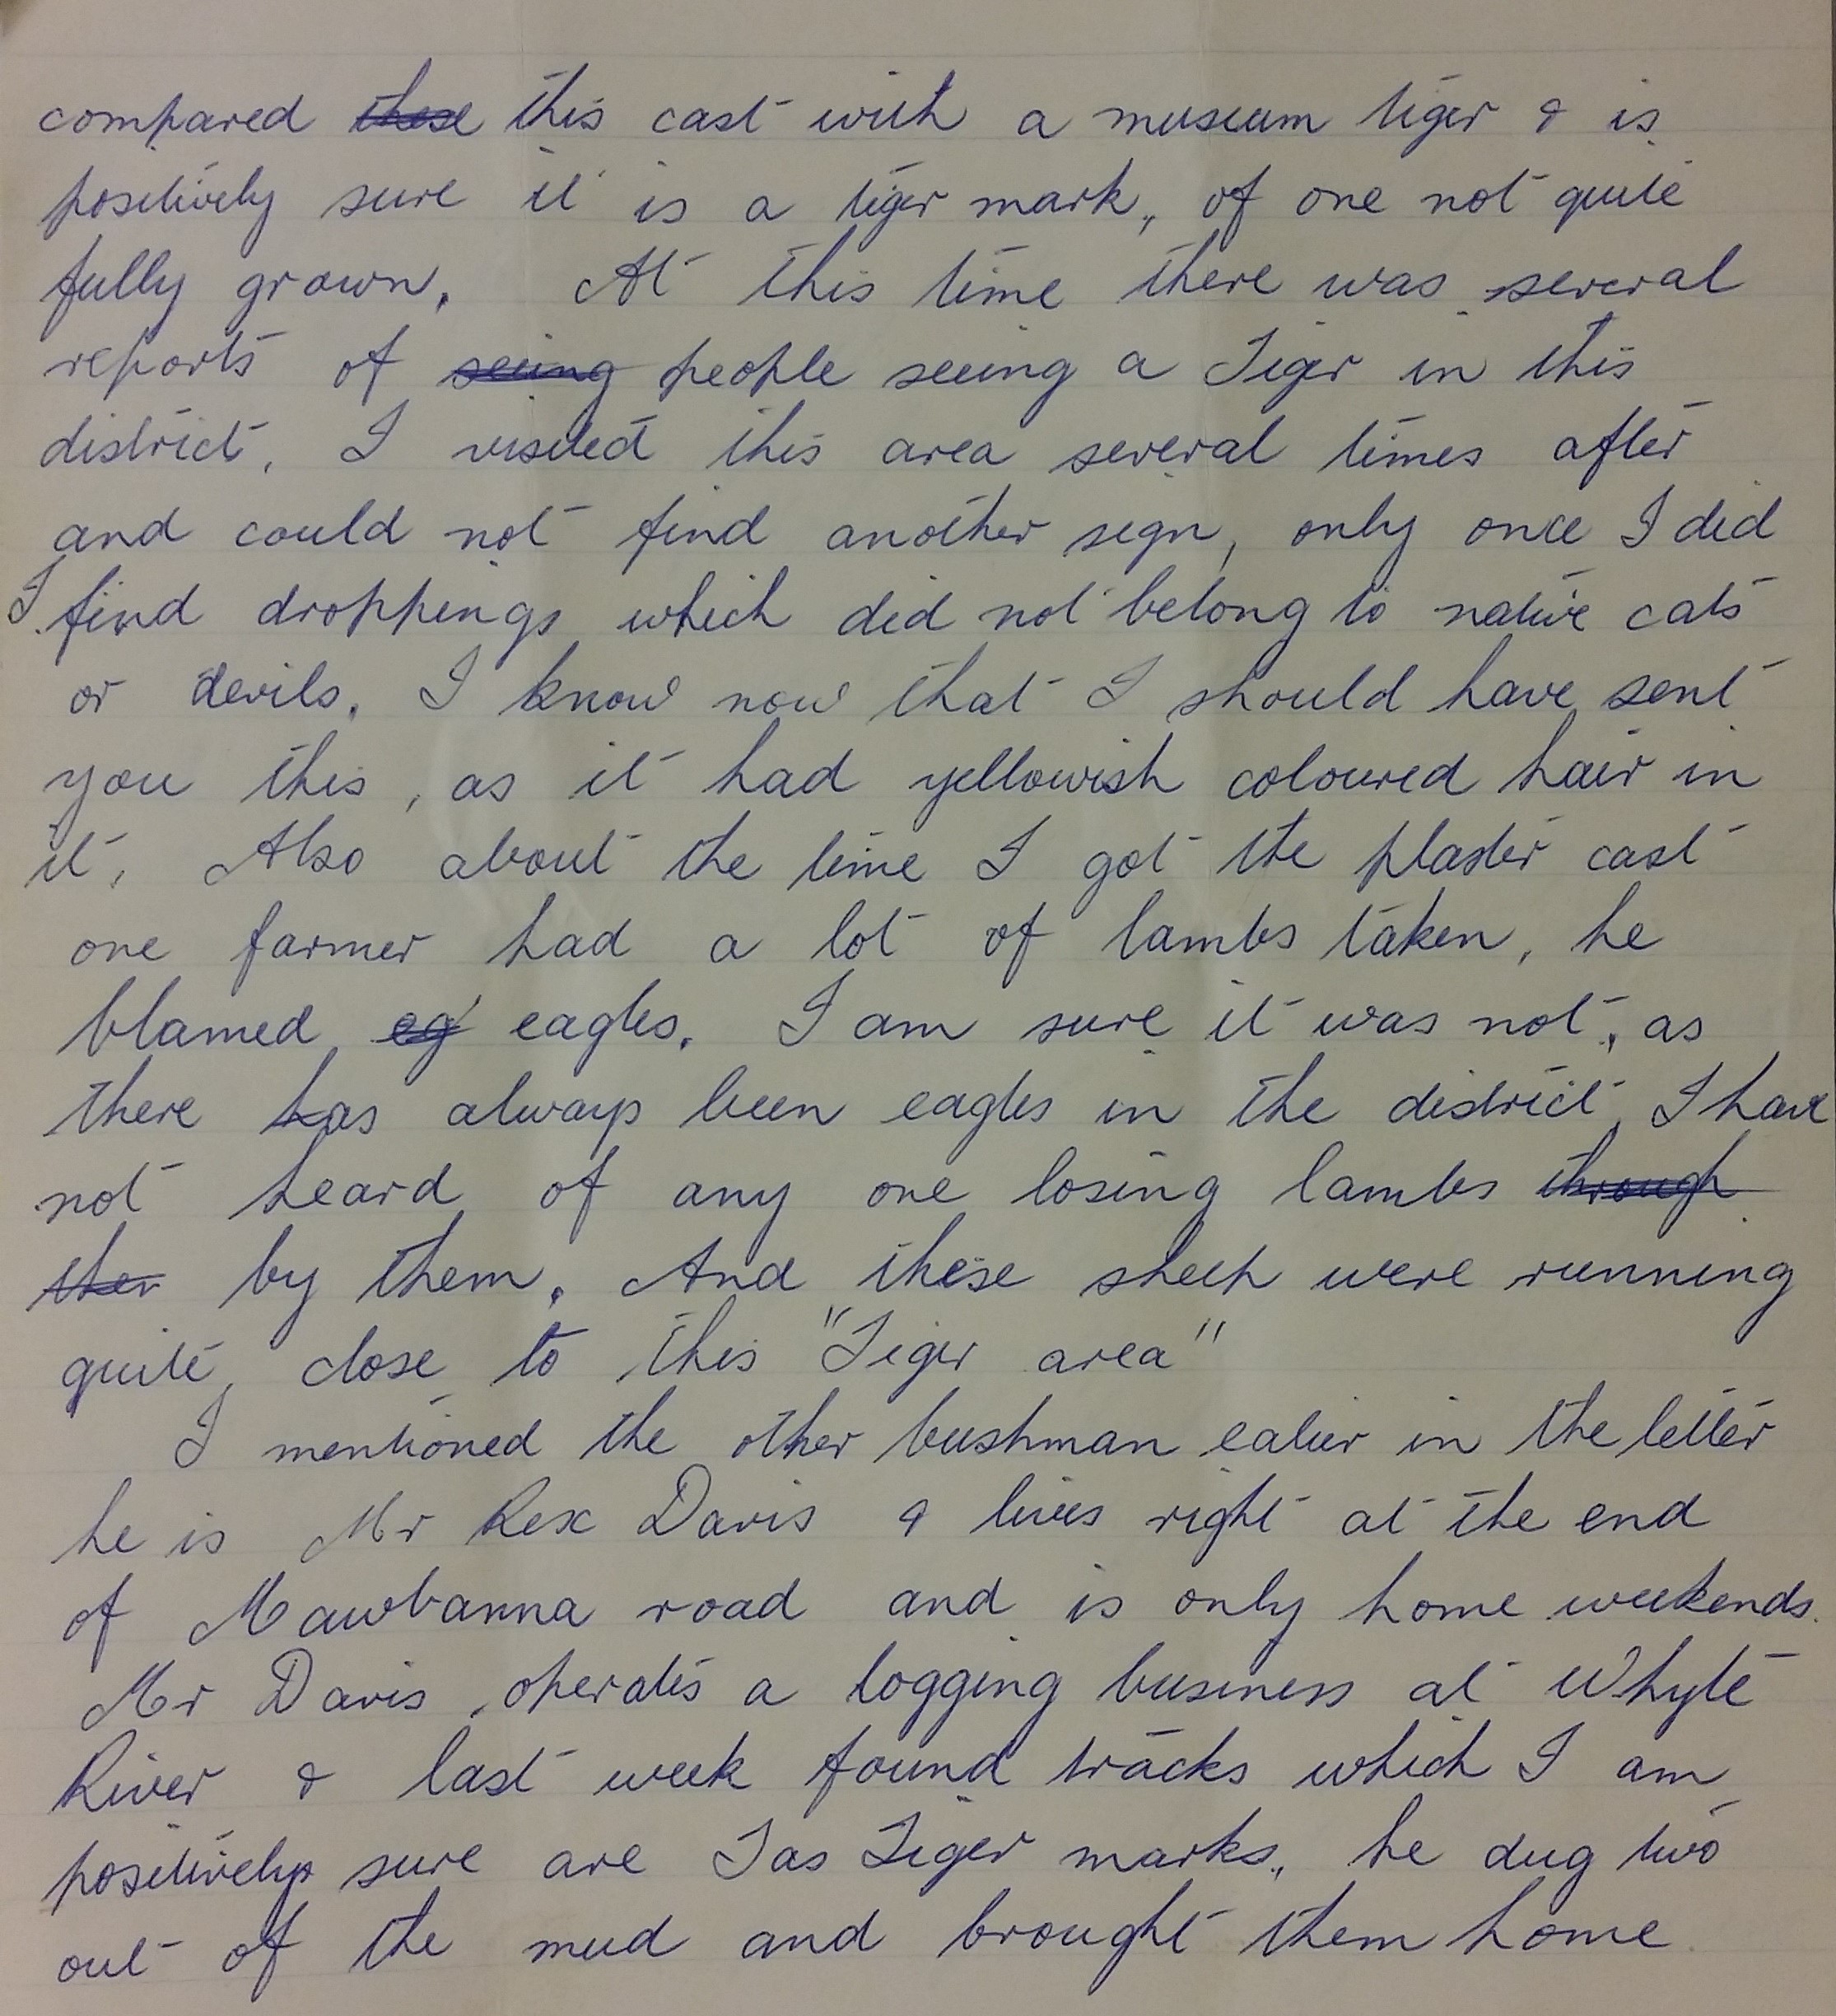 compared these this cast with a museum tiger & is
positively sure it is a tiger mark, of one not quite
fully grown. At this time there was several
reports of seeing people seeing a Tiger in this
district. I visited this area several times after
and could not find another sign, only once I did
I find droppings which did not belong to native cats
or devils. I know now that I should have sent
you this, as it had yellowish coloured hair in
it. Also about the time I got the plaster cast
one farmer had a lot of lambs taken, he
blamed eg eagles. I am sure it was not, as
there has always been eagles in the district, I have
not heard of any one losing lambs through
ther by them. And these sheep were running
quite close to this "Tiger area"
I mentioned the other bushman ealier in the letter
he is Mr Rex Davis & lives right at the end
of Mawbanna road and is only home weekends.
Mr Davis operates a logging business at Whyte
River & last week found tracks which I am
positively sure are Tas Tiger marks, he dug two
out of the mud and brought them home